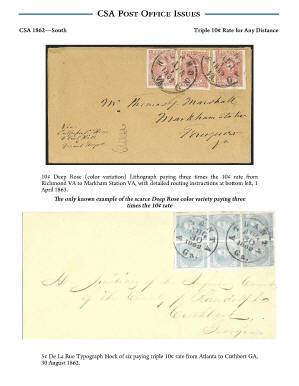 CSA Post Office Issues
CSA 1862—South Triple 10¢ Rate for Any Distance
Mr. Thomas G. Marshall
Markham Station
Va
Via
10¢ Deep Rose (color variation) Lithograph paying three times the 10¢ rate from
Richmond VA to Markham Station VA, with detailed routing instructions at bottom left, 1
April 1863.
The only known example of the scarce Deep Rose color variety paying three
times the 10¢ rate
AUG
30
1862
Ga.
of the
County of Randolph
Cuthbert
Georgia
5¢ De La Rue Typograph block of six paying triple 10¢ rate from Atlanta to Cuthbert GA,
30 August 1862.